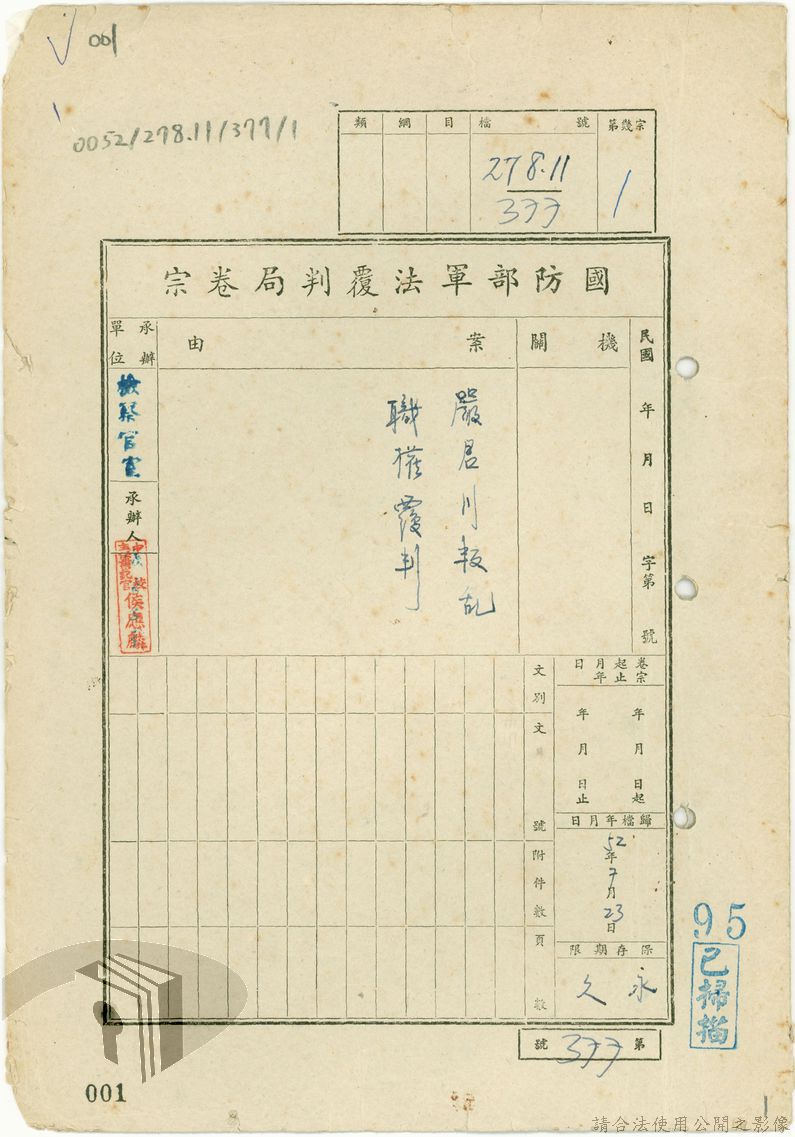 001
0052/278.11/377/1
類 綱 目 檔號 第幾宗
278.11
377
1
國防部軍法覆判局卷宗
民國 年 月 日 字第 號
機關
案由
嚴君川叛乱
職權覆判
承辦單位
檢察官室
承辦人
侯應麟
卷宗起止年月日
年 月 日起
年 月 日止
歸檔年月日
52年7月23日
保存期限
永久
文別
文號
附件數
頁數
第377號
95
已掃描
001
請合法使用公開之影像